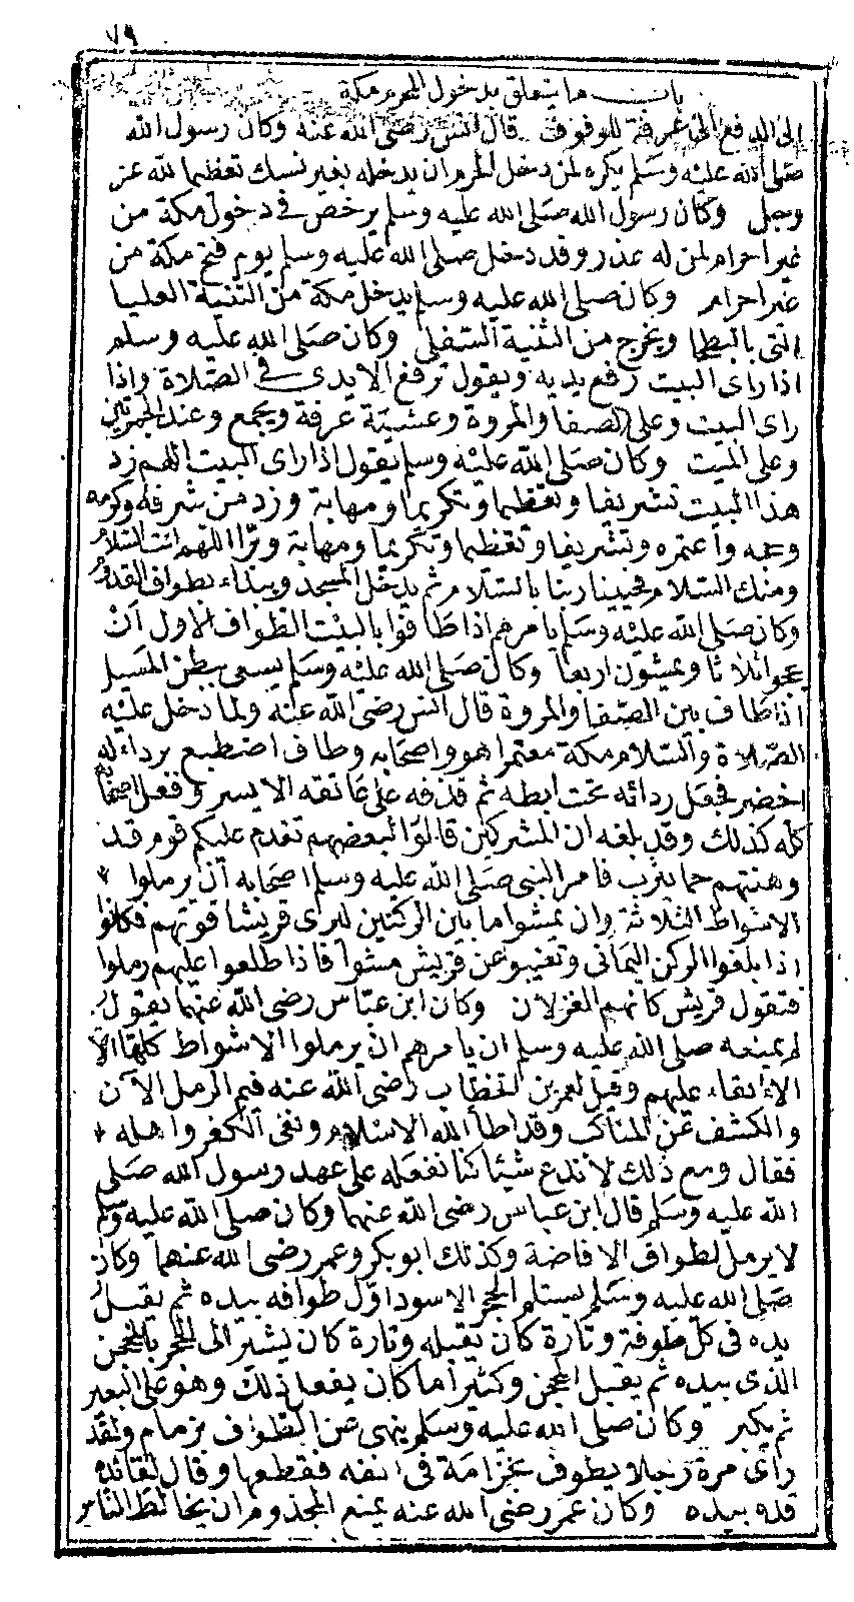 ٧٩
باب ما يتعلق بدخول المحرم مكة
الى الدفع الى عرفة للوقوف قال انس رضى الله عنه وكان رسول الله
صلى الله عليه وسلم يكره لمن دخل الحرم ان يدخله بغير نسك تعظيما لله عز
وجل وكان رسول الله صلى الله عليه وسلم يرخص فى دخول مكة من
غير احرام لمن له عذر وقد دخل صلى الله عليه وسلم يوم فتح مكة من
غير احرام وكان صلى الله عليه وسلم يدخل مكة من الثنية العليا
التى بالبطحا ويخرج من الثنية السفلى وكان صلى الله عليه وسلم
اذا راى البيت رفع يديه ويقول ترفع الايدى فى الصلاة واذا
راى البيت وعلى الصفا والمروة وعشية عرفة وبجمع وعند الجمرتين
وعلى الميت وكان صلى الله عليه وسلم يقول اذا راى البيت اللهم زد
هذا البيت تشريفا وتعظيما وتكريما ومهابة وزد من شرفه وكرمه
وحجه واعتمره وتشريفا وتعظيما وتكريما ومهابة وبرا اللهم انت السلام
ومنك السلام فحيينا ربنا بالسلام ثم يدخل المسجد ويبداء بطواف القدوم
وكان صلى الله عليه وسلم يامرهم اذا طافوا بالبيت الطواف الاول ان
يخبوا ثلاثا ويمشون اربعا وكان صلى الله عليه وسلم يسعى ببطن المسيل
اذا طاف بين الصفا والمروة قال انس رضى الله عنه ولما دخل عليه
الصلاة والسلام مكة معتمرا هو واصحابه وطاف اضطبع برداء له
اخضر فجعل ردائه تحت ابطه ثم قذفه على عاتقه الايسر وفعل اصحابه
كله كذلك وقد بلغه ان المشركين قالوا لبعضهم تقدم عليكم قوم قد
وهنتهم حما يثرب فامر النبى صلى الله عليه وسلم اصحابه ان يرملوا
الاشواط الثلاثة وان يمشوا ما بين الركنين ليرى قريشا قوتهم فكانوا
اذا بلغوا الركن اليمانى وتغيبو عن قريش مشوا فاذا طلعوا عليهم رملوا
فتقول قريش كانهم الغزلان وكان ابن عباس رضى الله عنهما يقول
لم يمنعه صلى الله عليه وسلم ان يامرهم ان يرملوا الاشواط كلها الا
الا ابقاء عليهم وقيل لعمر بن الخطاب رضى الله عنه فيم الرمل الآن
والكشف عن المناكب وقد اطأ الله الاسلام ونفى الكفر واهله
فقال ومع ذلك لا ندع شيئا كنا نفعله على عهد رسول الله صلى
الله عليه وسلم قال ابن عباس رضى الله عنهما وكان صلى الله عليه وسلم
لا يرمل لطواف الافاضة وكذلك ابو بكر وعمر رضى الله عنهما وكان
صلى الله عليه وسلم يستلم الحجر الاسود اول طوافه بيده ثم يقبل
يده فى كل طوفة وتارة كان يقبله وتارة كان يشير الى الحجر بالمحجن
الذى بيده ثم يقبل المحجن وكثيرا ما كان يفعل ذلك وهو على البعير
ثم يكبر وكان صلى الله عليه وسلم ينهى عن الطواف بزمام ولقد
راى مرة رجلا يطوف بخزامة فى انفه فقطعها وقال لقائده
قده بيده وكان عمر رضى الله عنه يمنع المجذوم ان يخالط الناس